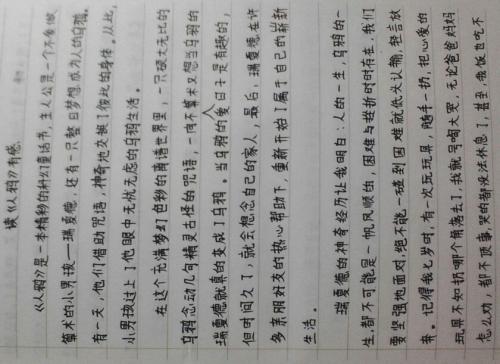 读《人鸦》有感
《人鸦》是一本精彩的科幻童话书，主人公是一个不肯做
算术的小男孩——瑞夏德，还有一只整日梦想成为人的乌鸦。
有一天，他们借助咒语，神奇地交换了彼此的身体。从此，
小男孩过上了他眼中无忧无虑的乌鸦生活。
在这个充满梦幻色彩的童话世界里，一只硕大无比的
乌鸦念动几句精灵古怪的咒语，一向不算术又想当乌鸦的
瑞夏德就真的变成了乌鸦。当乌鸦的日子是有趣的，
但时间久了，就会想念自己的家人，最后，瑞夏德在许
多亲朋好友的热心帮助下，重新开始了属于自己的崭新
生活。
瑞夏德的神奇经历让我明白：人的一生，乌鸦的一
生，都不可能是一帆风顺的，困难与挫折时时存在，我们
要坚强地面对，绝不能一碰到困难就低头认输，轻言放
弃。记得我七岁时，有一次玩玩具，随手一扔，把心爱的
玩具不知扔哪个角落去了，我就号啕大哭，无论爸爸妈妈
怎么劝，都不顶事，哭的都没法休息了，甚至，我饭也吃不